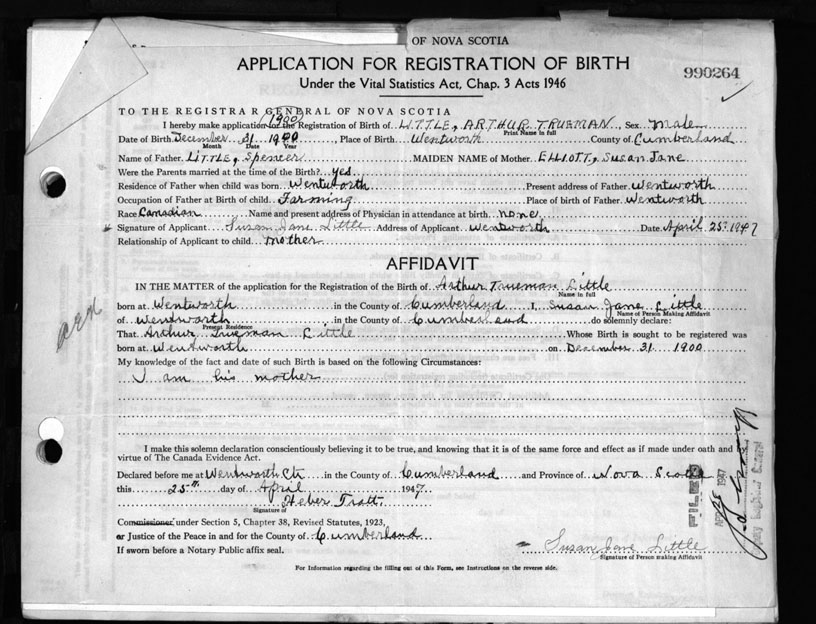 OF NOVA SCOTIA
APPLICATION FOR REGISTRATION OF BIRTH
990264
Under the Vital Statistics Act, Chap. 3 Acts 1946
TO THE REGISTRAR GENERAL OF NOVA SCOTIA
1900
I hereby make application for the Registration of Birth of LITTLE, ARTHUR TRUEMAN, Sex Male
Print Name in full
Date of Birth December 31 1900, Place of Birth Wentworth County of Cumberland
Month Date Year
Name of Father LITTLE, Spencer MAIDEN NAME of Mother ELLIOTT, Susan Jane
Were the Parents married at the time of the Birth? yes
Residence of Father when child was born Wentworth Present address of Father Wentworth
Occupation of Father at Birth of child Farming Place of birth of Father Wentworth
Race Canadian Name and present address of Physician in attendance at birth none
Signature of Applicant Susan Jane Little Address of Applicant Wentworth Date April 25th 1947
Relationship of Applicant to child mother
AFFIDAVIT
IN THE MATTER of the application for the Registration of the Birth of Arthur Trueman Little
Name in full
born at Wentworth in the County of Cumberland I, Susan Jane Little
Name of Person Making Affidavit
of Wentworth in the County of Cumberland do solemnly declare:
Present Residence
That Arthur Trueman Little Whose Birth is sought to be registered was
born at Wentworth on December 31 1900
My knowledge of the fact and date of such Birth is based on the following Circumstances:
I am his mother
I make this solemn declaration conscientiously believing it to be true, and knowing that it is of the same force and effect as if made under oath and
virtue of The Canada Evidence Act.
Declared before me at Wentworth Ctr in the County of Cumberland and Province of Nova Scotia
this 25th day of April 1947
Heber Tratt
Signature of
Commissioner under Section 5, Chapter 38, Revised Statutes, 1923,
or Justice of the Peace in and for the County of Cumberland
If sworn before a Notary Public affix seal.
Susan Jane Little
Signature of Person making Affidavit
For Information regarding the filling out of this Form, see Instructions on the reverse side.
FILED
APR 28 1947